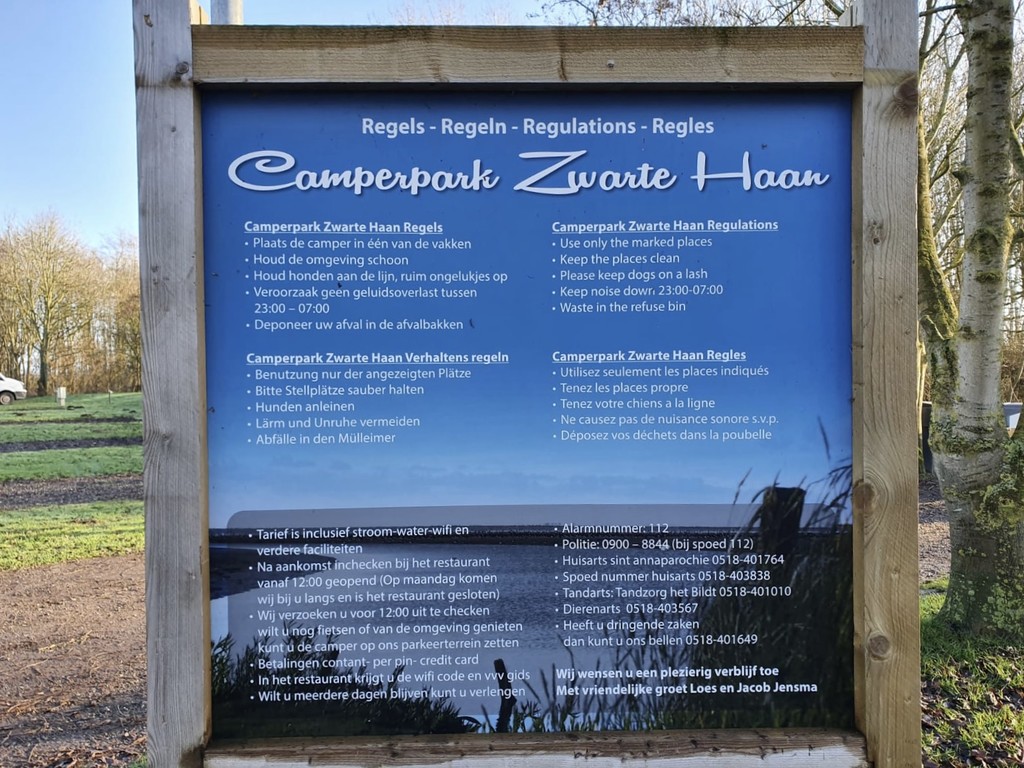 Regels - Regeln - Regulations - Regles
Camperpark Zwarte Haan
Camperpark Zwarte Haan Regels
• Plaats de camper in één van de vakken
• Houd de omgeving schoon
• Houd honden aan de lijn, ruim ongelukjes op
• Veroorzaak geen geluidsoverlast tussen
23:00 – 07:00
• Deponeer uw afval in de afvalbakken
Camperpark Zwarte Haan Regulations
• Use only the marked places
• Keep the places clean
• Please keep dogs on a lash
• Keep noise down 23:00-07:00
• Waste in the refuse bin
Camperpark Zwarte Haan Verhaltens regeln
• Benutzung nur der angezeigten Plätze
• Bitte Stellplätze sauber halten
• Hunden anleinen
• Lärm und Unruhe vermeiden
• Abfälle in den Mülleimer
Camperpark Zwarte Haan Regles
• Utilisez seulement les places indiqués
• Tenez les places propre
• Tenez votre chiens a la ligne
• Ne causez pas de nuisance sonore s.v.p.
• Déposez vos déchets dans la poubelle
• Tarief is inclusief stroom-water-wifi en
verdere faciliteiten
• Na aankomst inchecken bij het restaurant
vanaf 12:00 geopend (Op maandag komen
wij bij u langs en is het restaurant gesloten)
• Wij verzoeken u voor 12:00 uit te checken
wilt u nog fietsen of van de omgeving genieten
kunt u de camper op ons parkeerterrein zetten
• Betalingen contant- per pin- credit card
• In het restaurant krijgt u de wifi code en vvv gids
• Wilt u meerdere dagen blijven kunt u verlengen
• Alarmnummer: 112
• Politie: 0900 – 8844 (bij spoed 112)
• Huisarts sint annaparochie 0518-401764
• Spoed nummer huisarts 0518-403838
• Tandarts: Tandzorg het Bildt 0518-401010
• Dierenarts 0518-403567
• Heeft u dringende zaken
dan kunt u ons bellen 0518-401649
Wij wensen u een plezierig verblijf toe
Met vriendelijke groet Loes en Jacob Jensma